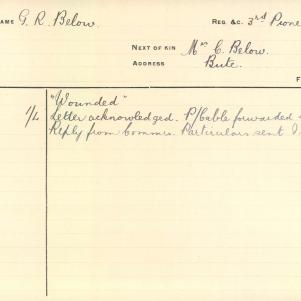 NAME G. R. Below. REG. &C. 3rd Pione
NEXT OF KIN Mrs C. Below.
ADDRESS Bute.
F
"Wounded"
1/4 Letter acknowledged. P/Cable forwarded
Reply from Commrs. Particulars sent